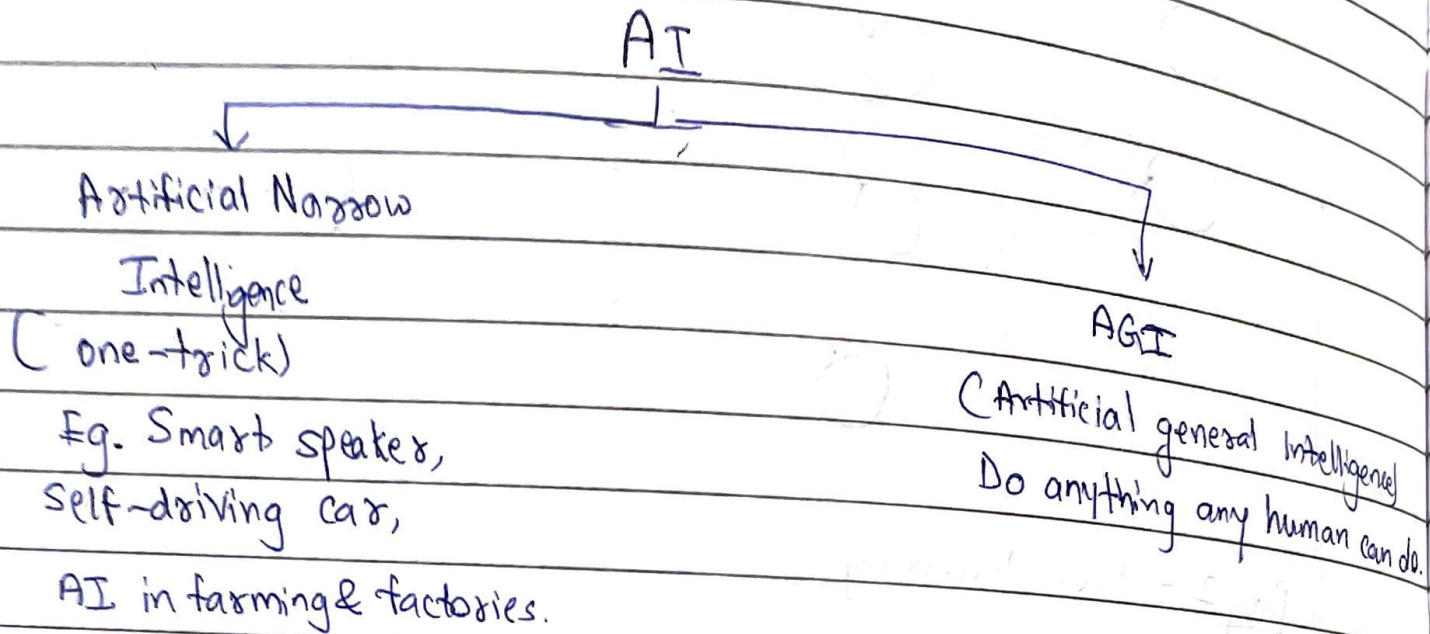 AI
Artificial Narrow
Intelligence
(one-trick)
Eg. Smart speaker,
Self-driving car,
AI in farming & factories.
AGI
(Artificial general Intelligence)
Do anything any human can do.